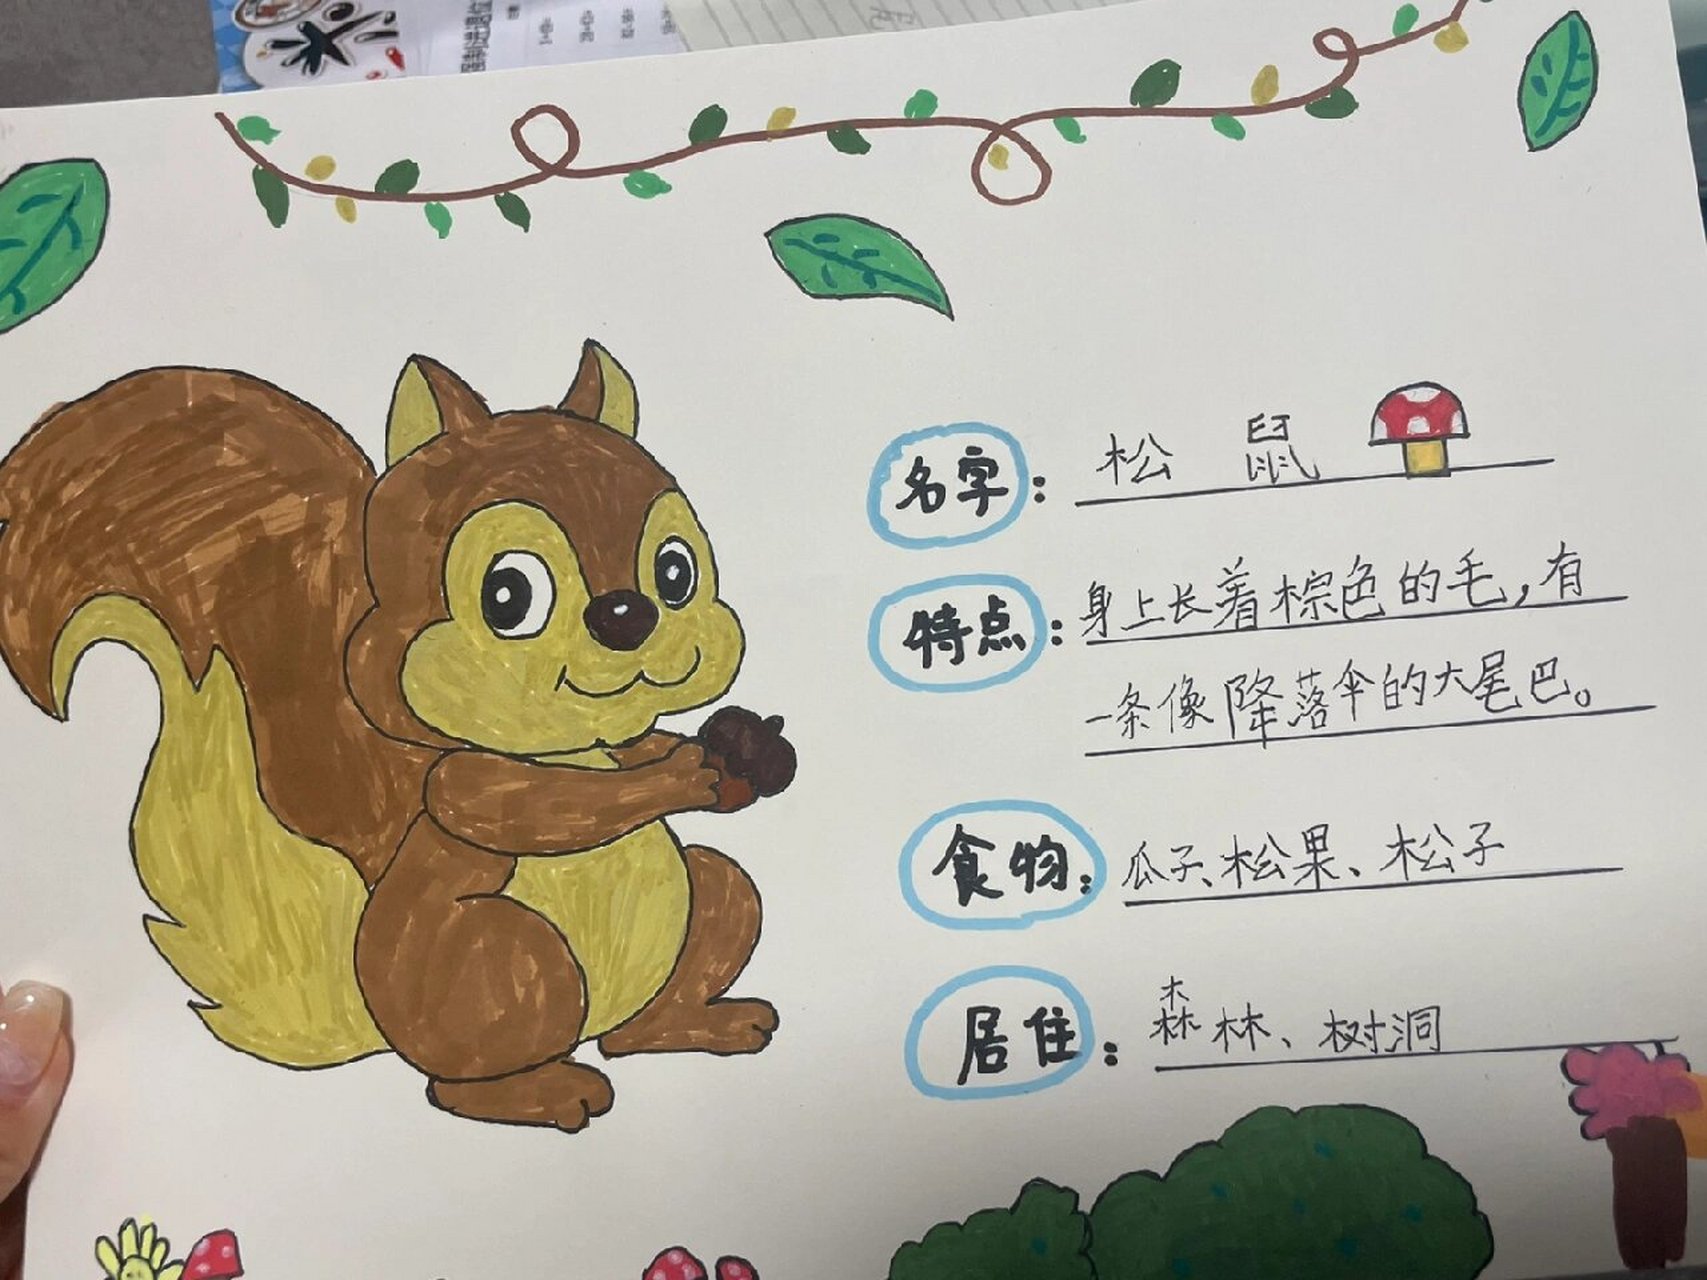 名字：松鼠
特点：身上长着棕色的毛，有
一条像降落伞的大尾巴。
食物：瓜子、松果、松子
居住：森林、树洞